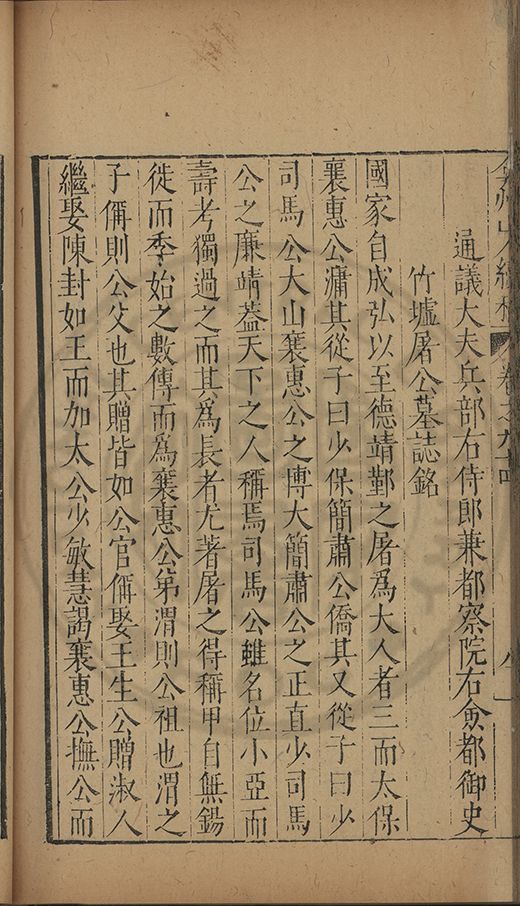 通議大夫兵部右侍郎兼都察院右僉都御史
竹墟屠公墓誌銘
國家自成弘以至德靖鄞之屠為大人者三而太保
襄惠公滽其從子曰少保簡肅公僑其又從子曰少
司馬公大山襄惠公之博大簡肅公之正直少司馬
公之廉靖蓋天下之人稱焉司馬公雖名位小亞而
壽考獨過之而其為長者尤著屠之得稱甲自無錫
徙而季始之數傳而為襄惠公第渭則公祖也渭之
子偁則公父也其贈皆如公官偁娶王生公贈淑人
繼娶陳封如王而加太公少敏慧謁襄惠公撫公而